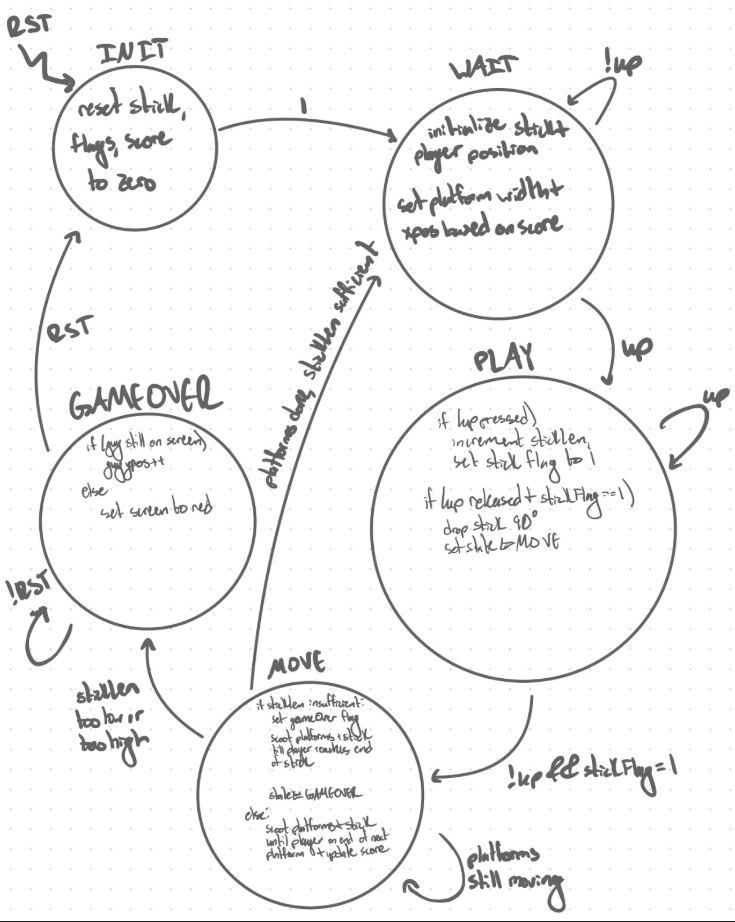 RST
INIT
reset stick,
flags, score
to zero
1
WAIT
!up
initialize stick+
player position
set platform width+
xpos based on score
up
PLAY
up
if (up pressed)
increment sticklen,
set stick flag to 1
if (up released + stickFlag==1)
drop stick 90°
set state to MOVE
!up && stickFlag=1
MOVE
if sticklen insufficient:
set gameOver flag
scoot platforms + stick
till player reaches end
of stick
state= GAMEOVER
else:
scoot platforms + stick
until player on end of next
platform + update score
platforms
still moving
platforms done, sticklen sufficient
sticklen
too low or
too high
GAMEOVER
if (guy still on screen)
guy ypos++
else
set screen to red
!RST
RST